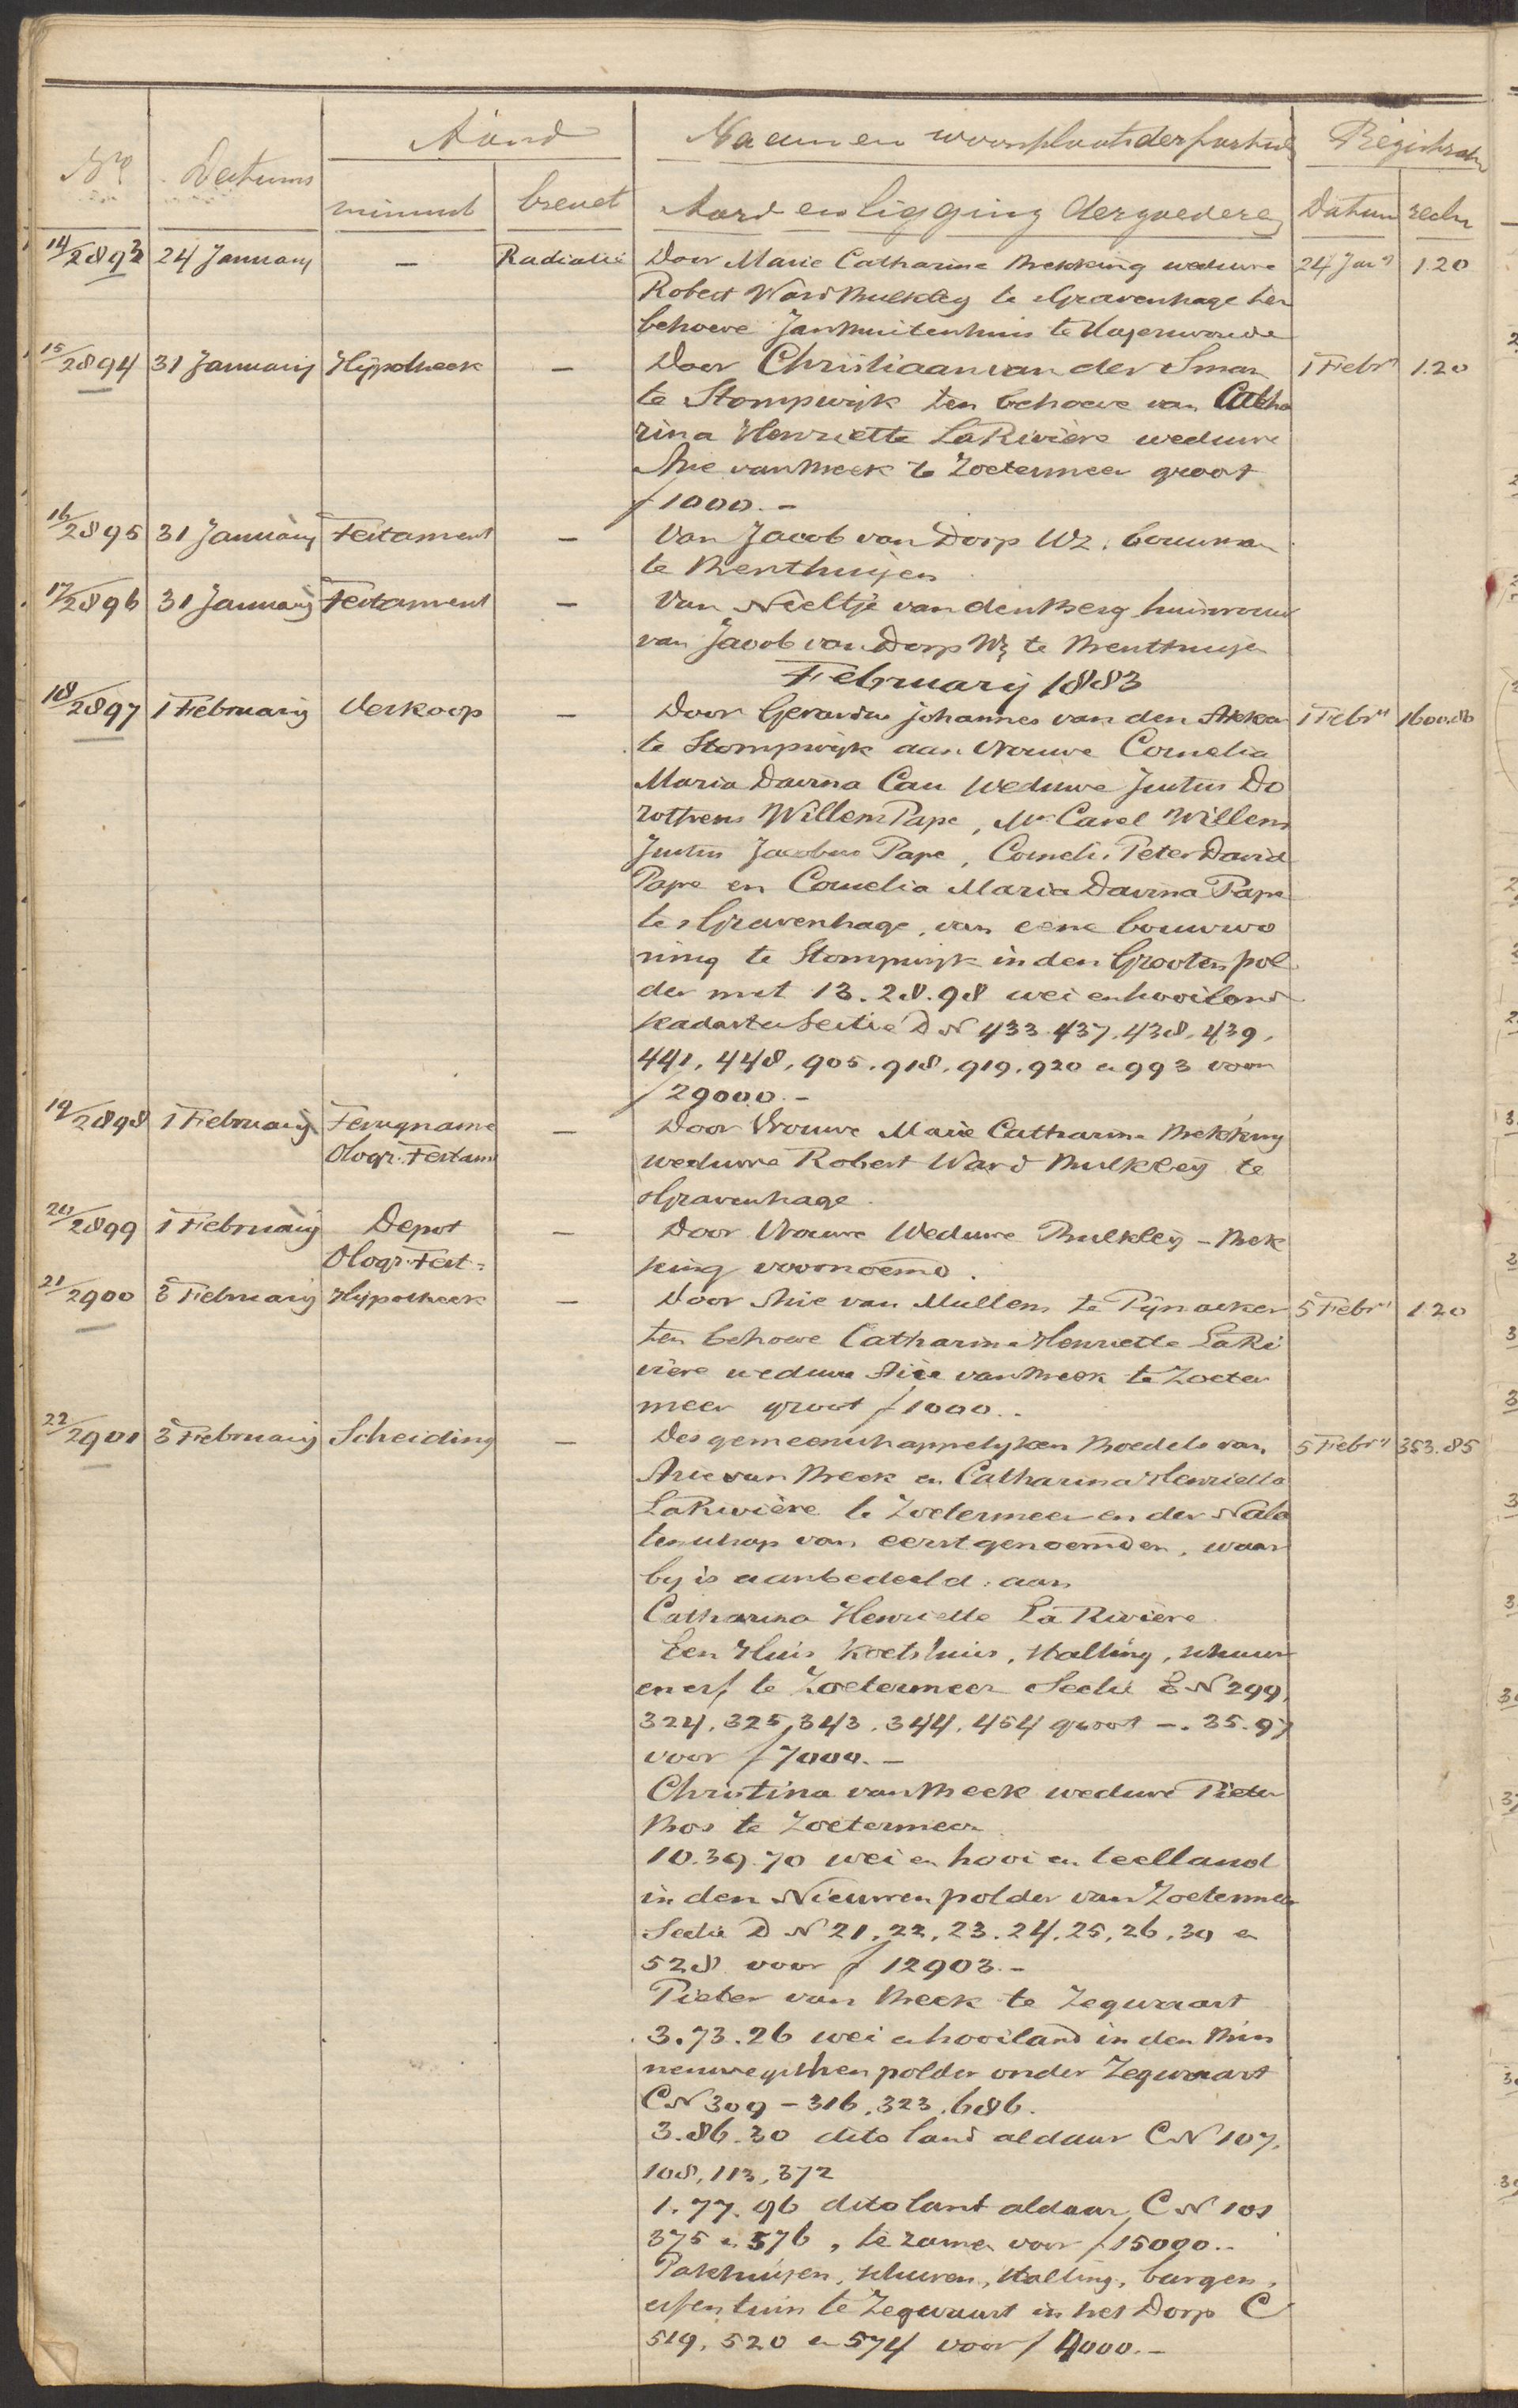 No Datums Aard Naamen en woonplaats der partijen Registratie
minuut brevet Aard en ligging der goederen Datum recht
14/2893 24 January — Radiatie Door Marie Catharina Brekking weduwe 24 Jany 1.20
Robert Ward Bulkley te sGravenhage ten
behoeve Jan Buitenhuis te Hazerswoude
15/2894 31 January Hypotheek — Door Christiaan van der Sman 1 Febry 1.20
te Stompwijk ten behoeve van Catha
rina Henriette LaRivière weduwe
Arie van Beek te Zoetermeer groot
f 1000.-
16/2895 31 January Testament — Van Jacob van Dorp Wz. bouwman
te Benthuizen
17/2896 31 January Testament — Van Neeltje van den Berg huisvrouw
van Jacob van Dorp Wz te Benthuizen
February 1883
18/2897 1 February Verkoop — Door Gerardus Johannes van den Akker 1 Febry 1600.80
te Stompwijk aan Vrouwe Cornelia
Maria Davina Cau Weduwe Justus Do
rotheus Willem Pape, Mr Carel Willem
Justus Jacobus Pape, Cornelis Peter David
Pape en Cornelia Maria Davina Pape
te sGravenhage, van eene bouwwo
ning te Stompwijk in den Grooten pol
der met 13.28.98 wei en hooiland
kadaster Sectie D No 433.437.438.439.
441.448.905.918.919.920 en 993 voor
f 29000.-
19/2898 1 February Terugname — Door Vrouwe Marie Catharina Brekking
Ologr. Testam weduwe Robert Ward Bulkley te
sGravenhage.
20/2899 1 February Depot — Door Vrouwe Weduwe Bulkley - Brek
Ologr. Test: king voornoemd.
21/2900 3 February Hypotheek — Door Arie van Mullem te Pijnacker 5 Febry 1.20
ten behoeve Catharina Henriette LaRi
vière weduwe Arie van Beek te Zoeter
meer groot f 1000..
22/2901 3 February Scheiding — Des gemeenschappelyken Boedels van 5 Febry 353.85
Arie van Beek en Catharina Henriette
LaRivière te Zoetermeer en der Nala
tenschap van eerstgenoemden, waar
by is aanbedeeld: aan
Catharina Henriette La Rivière
Een Huis Koetshuis, stalling, schuur
en erf te Zoetermeer Sectie E No 299,
324, 325, 343, 344, 454 groot -. 35.97
voor f 7000.-
Christina van Beek weduwe Pieter
Bos te Zoetermeer
10.39.70 wei en hooi en teelland
in den Nieuwen polder van Zoetermeer
Sectie D No 21, 22, 23. 24. 25, 26, 30 en
528 voor f 12903.-
Pieter van Beek te Zegwaart
3.73.26 wei en hooiland in den Bin
nenwegschen polder onder Zegwaart
C No 309 - 316, 323, 686.
3.86.30 dito land aldaar C No 107,
108, 113, 372
1.77.96 dito land aldaar C No 101
375 en 576, te zamen voor f 15000.-
Pakhuizen, schuren, stalling, bargen,
erf en tuin te Zegwaart in het Dorp C
519, 520 en 574 voor f 4000.-